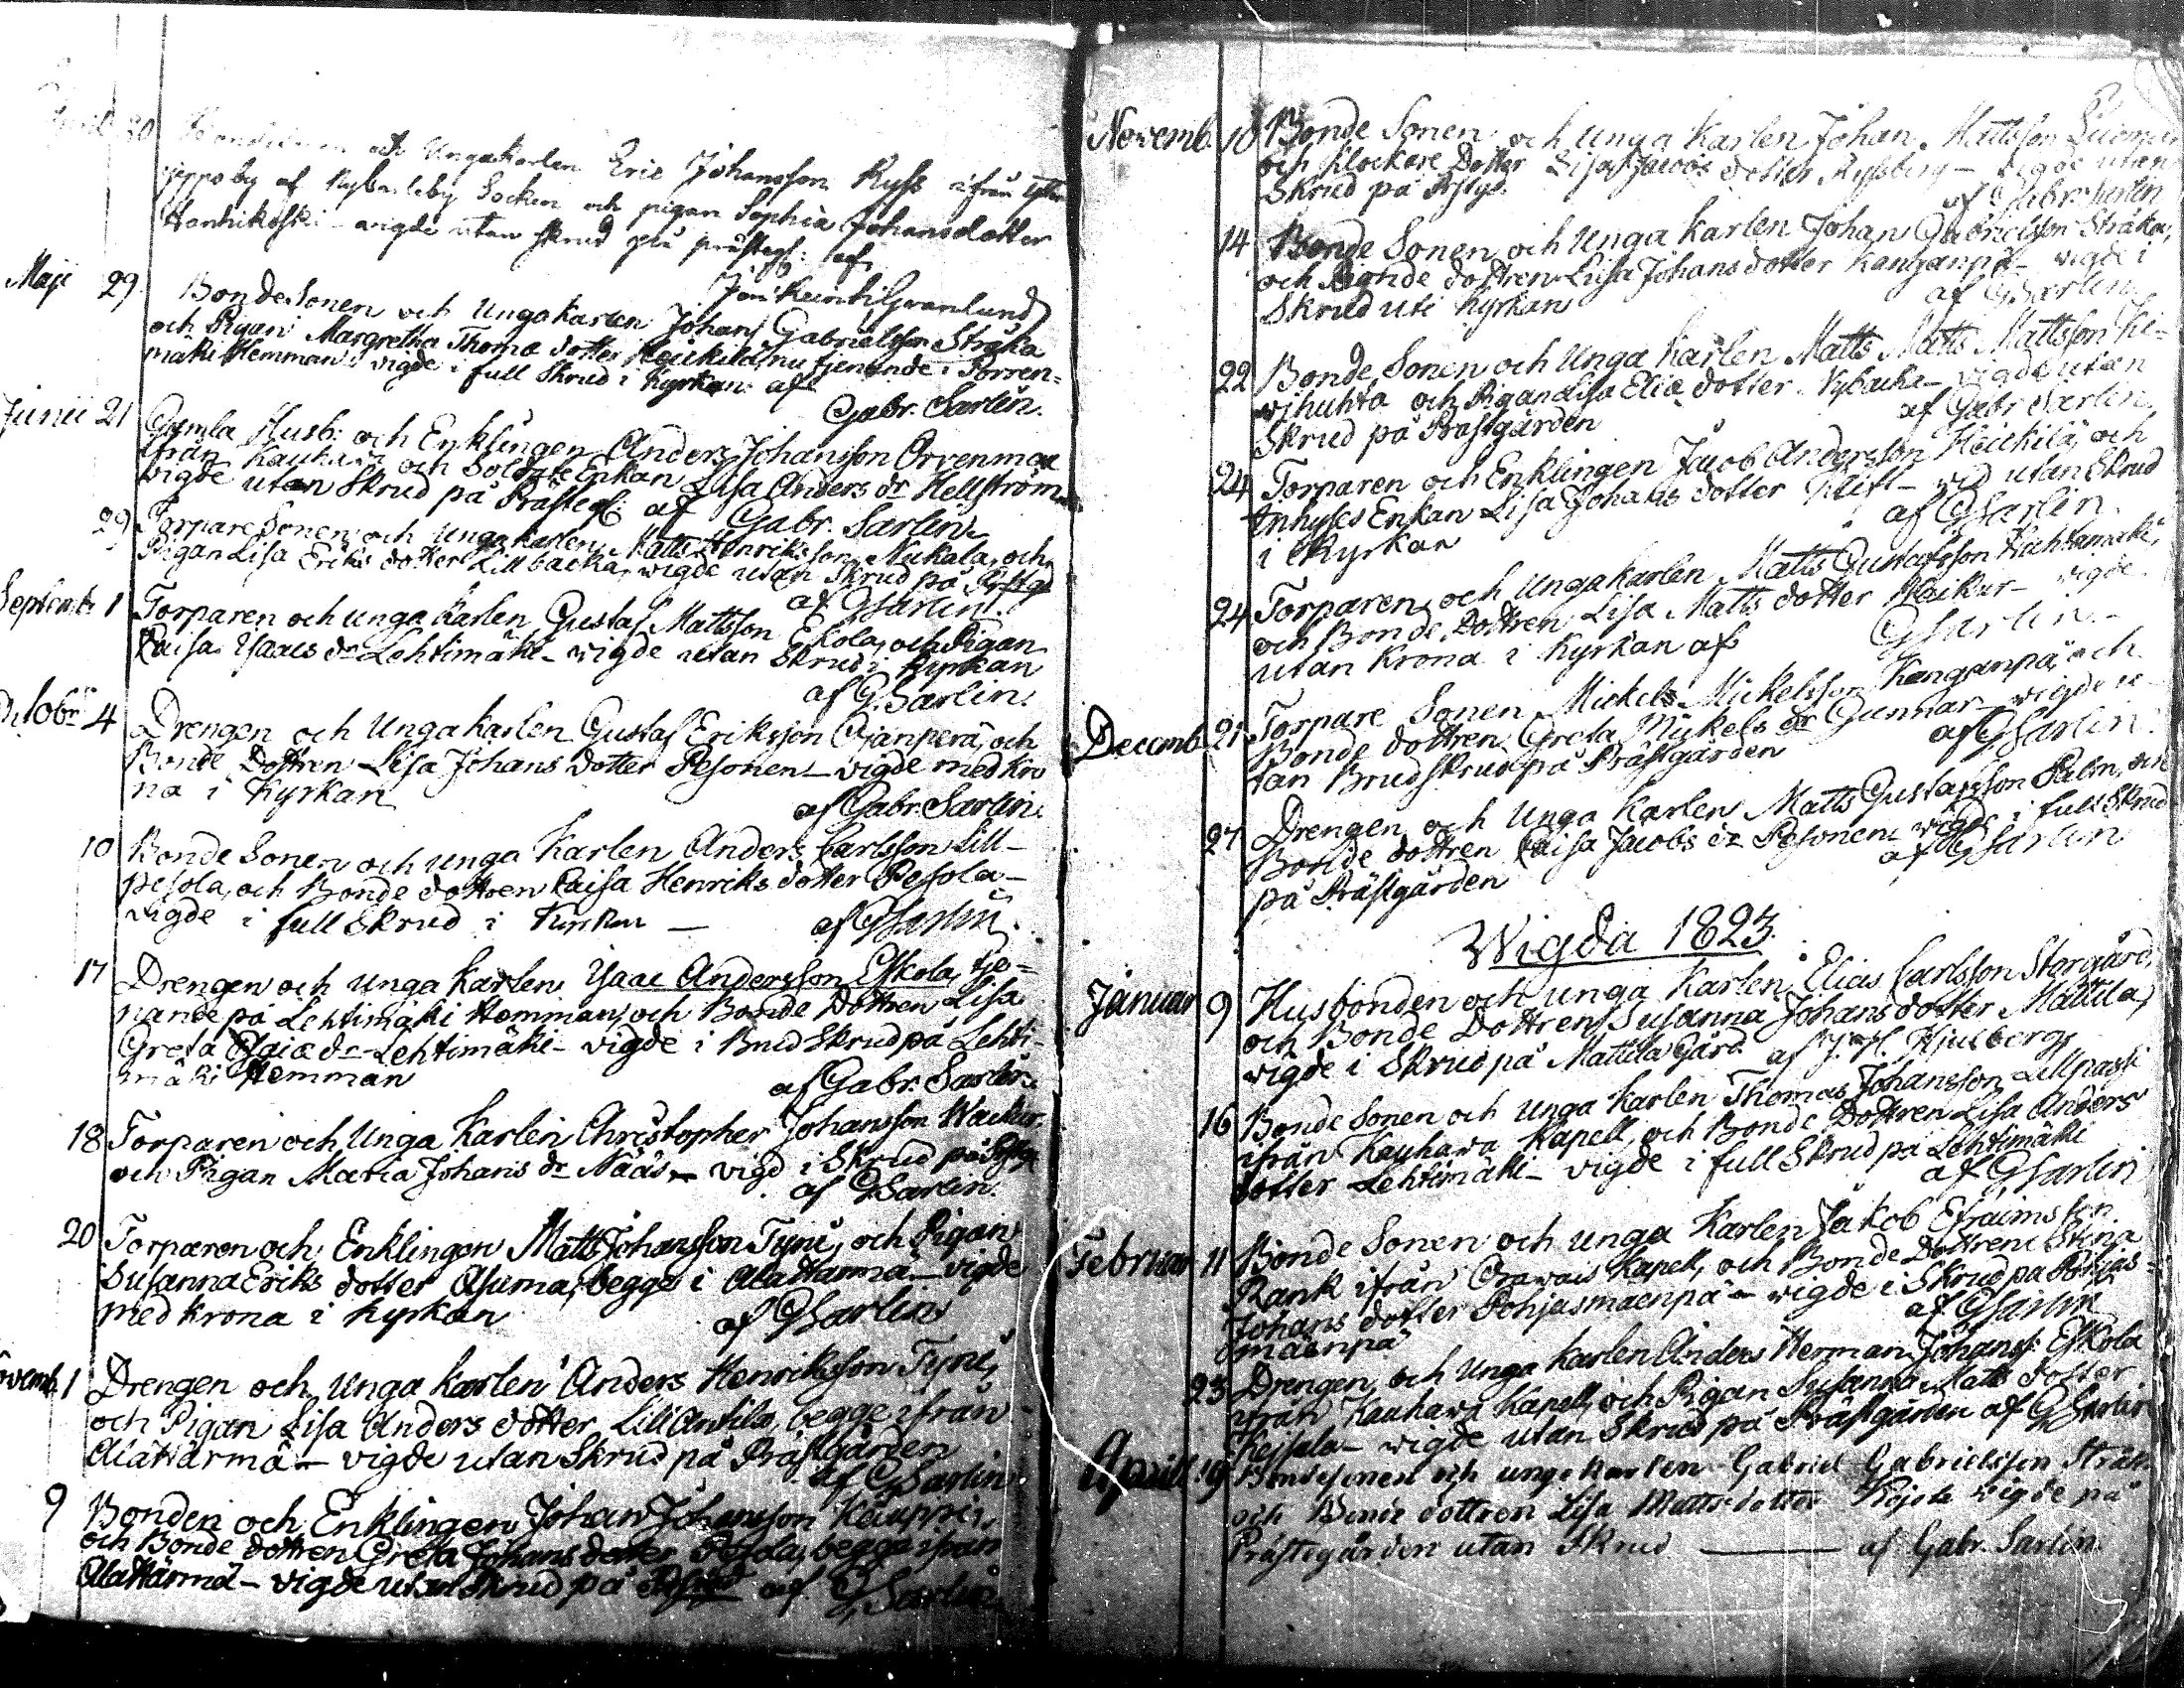 30 och Ungakarlen Eric Johansson Ryss ifrån ytter
jeppo by af Nykarleby Socken och pigan Sophia Johansdotter
Hanhikoski – vigde utan skrud på prästeg: af
Granlund
Maji 29 Bonde Sonen och Ungakarlen Johan Gabrielsson Stråka
och Pigan Margretha Thomæ dotter Heickilä, nu tjenande i Torren=
mäki Hemman – vigde i full Skrud i Kyrkan af
Gabr. Sarlin.
Junii 21 Gamla Husb: och Enklingen Anders Johansson Orrenmaa
ifrån Kauhava och Soldate Enkan Lisa Anders dr Hellström
vigde utan Skrud på Prästeg: af Gabr. Sarlin
29 Torpare Sonen och unga karlen Matts Henriksson Nukala, och
Pigan Lisa Eriks dotter Lillbacka, wigde utan Skrud på Prstgd
af GSarlin.
Septemb 1 Torparen och unga karlen Gustaf Mattsson Ekola, och Pigan
Caisa Ysaacs dr Lehtimäki – wigde utan Skrud i Kyrkan
af G.Sarlin.
Octobr 4 Drengen och Unga karlen Gustaf Eriksson Ojanperä, och
Bonde Dottren Lisa Johans dotter Pesonen – vigde med kro
na i Kyrkan
af Gabr. Sarlin.
10 Bonde Sonen och unga Karlen Anders Carlsson Lill-
pesola, och Bonde dottren Caisa Henriks dotter Pesola –
vigde i full Skrud i Kyrkan – af GSarlin.
17 Drengen och unga karlen Ysaac Andersson Eskola, tje=
nande på Lehtimäki Hemman, och Bonde Dottren Lisa
Greta dr Lehtimäki – vigde i Brud Skrud på Lehti-
mäki Hemman
af Gabr. Sarlin.
18 Torparen och Unga Karlen Christopher Johansson Wackur,
och Pigan Maria Johans dr Nääs – vigd i Skrud på
af GSarlin.
20 Torparen och Enklingen Matts Johansson Tyni, och Pigan
Susanna Eriks dotter Asuma, begge i Alahärmä – vigde
med krona i kyrkan
af GSarlin
Novemb. 1 Drengen och unga karlen Anders Henriksson Tyni,
och Pigan Lisa Anders dotter Lill Antila, begge ifrån
Alahärmä – vigde utan Skrud på Prästgården
af GSarlin.
9 Bonden och Enklingen Johan Johansson Kauppi,
och Bonde dottren Greta Johans dotter Pesola, begge ifrån
Alahärmä – vigde utan Skrud på af G.Sarlin.
Novemb. 10 Bonde Sonen och unga Karlen Johan Mattsson
och Klockare Dotter Lisa Jacobs dotter – vigde utan
Skrud på Prstgd.
af Gabr. Sarlin
14 Bonde Sonen och Unga karlen Johan Gabrielsson Stråka,
och Bonde dottren Lisa Johans dotter Kanganpä – vigde i
Skrud uti Kyrkan
af GSarlin
22 Bonde Sonen och Unga Karlen Matts Matts Mattsson Ki-
wjhuhta och Pigan Lisa Eliæ dotter Nybacka – vigde utan
Skrud på Prästgården
af Gabr Sarlin,
24 Torparen och Enklingen Jacob Andersson Heickilä, och
Inhyses Enkan Lisa Johans dotter – vid utan Skrud
i Kyrkan
af GSarlin.
24 Torparen och Unga karlen Matts Gustafsson Huhtamäki,
och Bonde Dottren Lisa Matts dotter Wackur – vigde
utan Krona i Kyrkan af GSarlin.-
Decemb 21 Torpare Sonen Mickels Mickelsson Kanganpä, och
Bonde dottren Greta Mickels dr Gunnar – vigde u-
tan Brudskrud på Prästgården
af GSarlin.
27 Drengen och Unga karlen Matts Gustafsson Palm, och
Bonde dottren Caisa Jacobs dr Pesonen – vigde i full Skrud
på Prästgården
af GSarlin
Wigda 1823.
Januar 9 Husbonden och unga Karlen Elias Carlsson Storgård,
och Bonde Dottren Susanna Johans dotter Mattila,
vigde i Skrud på Mattila Gård af Hjulberg
16 Bonde Sonen och unga Karlen Thomas Johansson Lillpassi
ifrån Kauhava Kapell, och Bonde Dottren Lisa Anders
dotter Lehtimäki – vigde i full Skrud på Lehtimäki
af GSarlin
Februar 11 Bonde Sonen och unga Karlen Jakob Efraimsson
Rank ifrån Orawais Kapell, och Bonde Dottren Stina
Johans dotter Pohjasmaenpä – vigde i Skrud på Pohjas-
maenpä
af GSarlin
23 Drengen och Unga karlen Anders Herman Johanss: Eskola
ifrån Kauhava Kapell, och Pigan Susanna Matts dotter
Keisala – wigde utan Skrud på Prästgården af GSarlin
Aprill 19 Bondesonen och unga karlen Gabriel Gabrielsson Stråk
och Bonde dottren Lisa Mattsdotter Kojola vigde på
Prästegården utan Skrud — af Gabr. Sarlin.